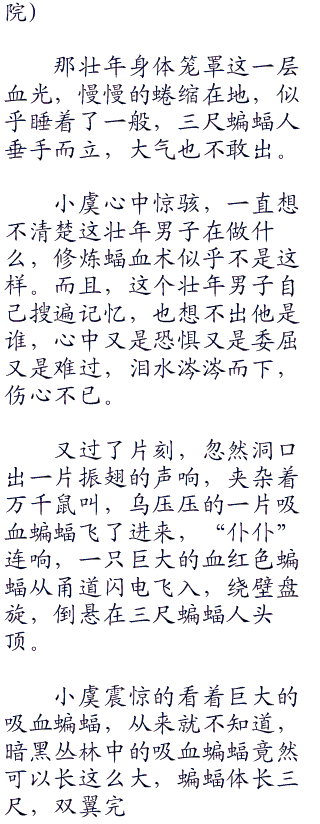 院）
那壮年身体笼罩这一层
血光，慢慢的蜷缩在地，似
乎睡着了一般，三尺蝙蝠人
垂手而立，大气也不敢出。
小虞心中惊骇，一直想
不清楚这壮年男子在做什
么，修炼蝠血术似乎不是这
样。而且，这个壮年男子自
己搜遍记忆，也想不出他是
谁，心中又是恐惧又是委屈
又是难过，泪水涔涔而下，
伤心不已。
又过了片刻，忽然洞口
出一片振翅的声响，夹杂着
万千鼠叫，乌压压的一片吸
血蝙蝠飞了进来，“仆仆”
连响，一只巨大的血红色蝙
蝠从甬道闪电飞入，绕壁盘
旋，倒悬在三尺蝙蝠人头
顶。
小虞震惊的看着巨大的
吸血蝙蝠，从来就不知道，
暗黑丛林中的吸血蝙蝠竟然
可以长这么大，蝙蝠体长三
尺，双翼完